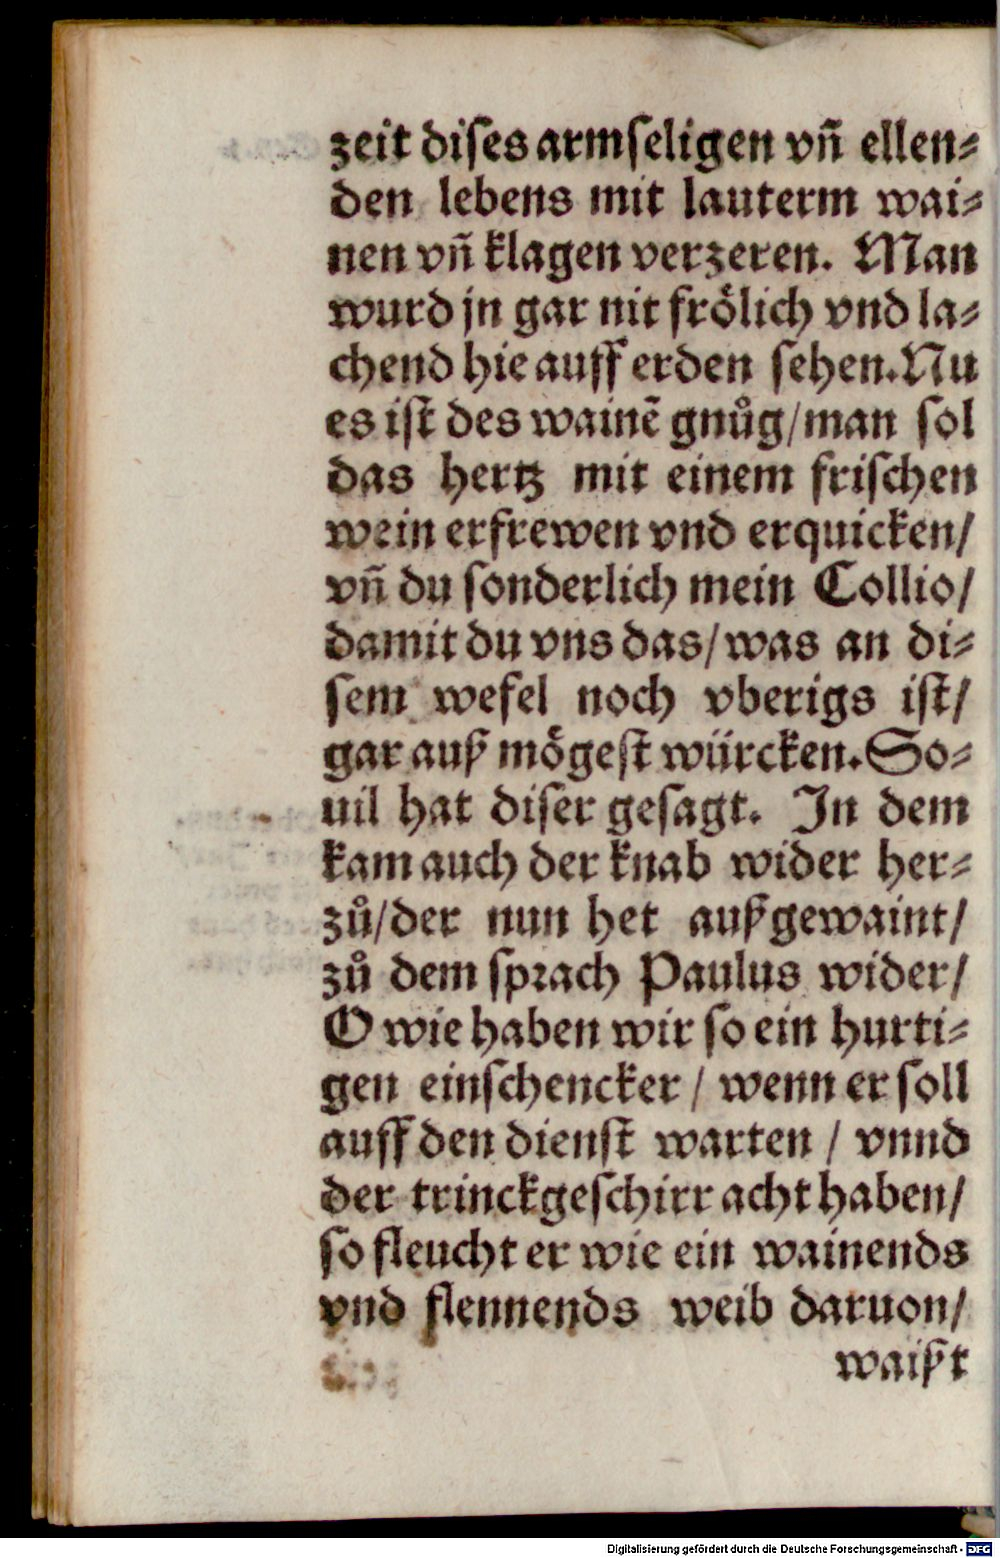 zeit dises armseligen vñ ellen⸗
den lebens mit lauterm wai⸗
nen vñ klagen verzeren. Man
wurd jn gar nit frölich vnd la⸗
chend hie auff erden sehen. Nu
es ist des wainẽ gnůg/man sol
das hertz mit einem frischen
wein erfrewen vnd erquicken/
vñ du sonderlich mein Collio/
damit du vns das/was an di⸗
sem wefel noch vberigs ist/
gar auß mögest würcken. So⸗
uil hat diser gesagt. In dem
kam auch der knab wider her⸗
zů/der nun het außgewaint/
zů dem sprach Paulus wider/
O wie haben wir so ein hurti⸗
gen einschencker / wenn er soll
auff den dienst warten / vnnd
der trinckgeschirr acht haben/
so fleucht er wie ein wainends
vnd flennends weib daruon/
waißt
Digitalisierung gefördert durch die Deutsche Forschungsgemeinschaft - DFG